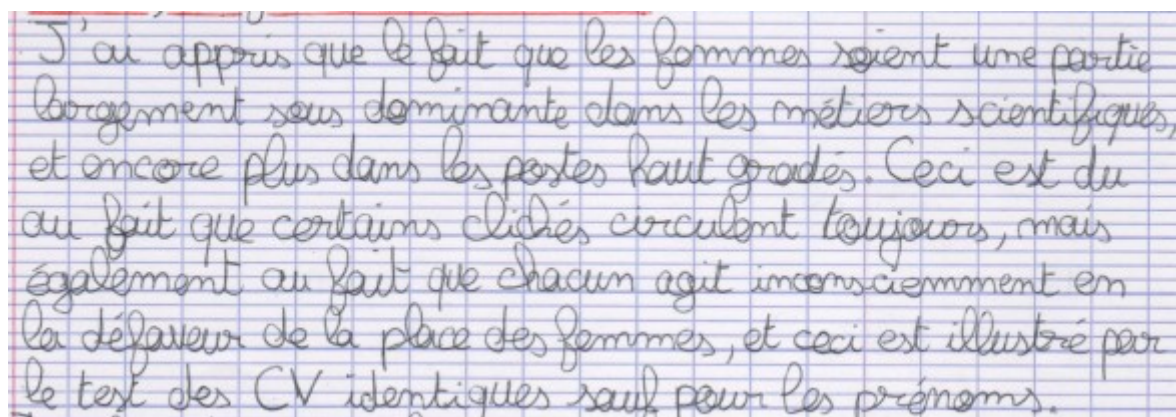 J'ai appris que le fait que les femmes soient une partie
largement sous dominante dans les métiers scientifiques
et encore plus dans les postes haut gradés. Ceci est du
au fait que certains clichés circulent toujours, mais
également au fait que chacun agit inconsciemment en
la défaveur de la place des femmes, et ceci est illustré par
le test des CV identiques sauf pour les prénoms.